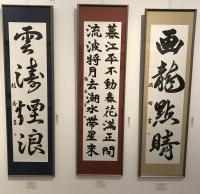 画龍點睛
暮江平不動春花滿正開
流波將月去潮水帶星來
雲濤煙浪